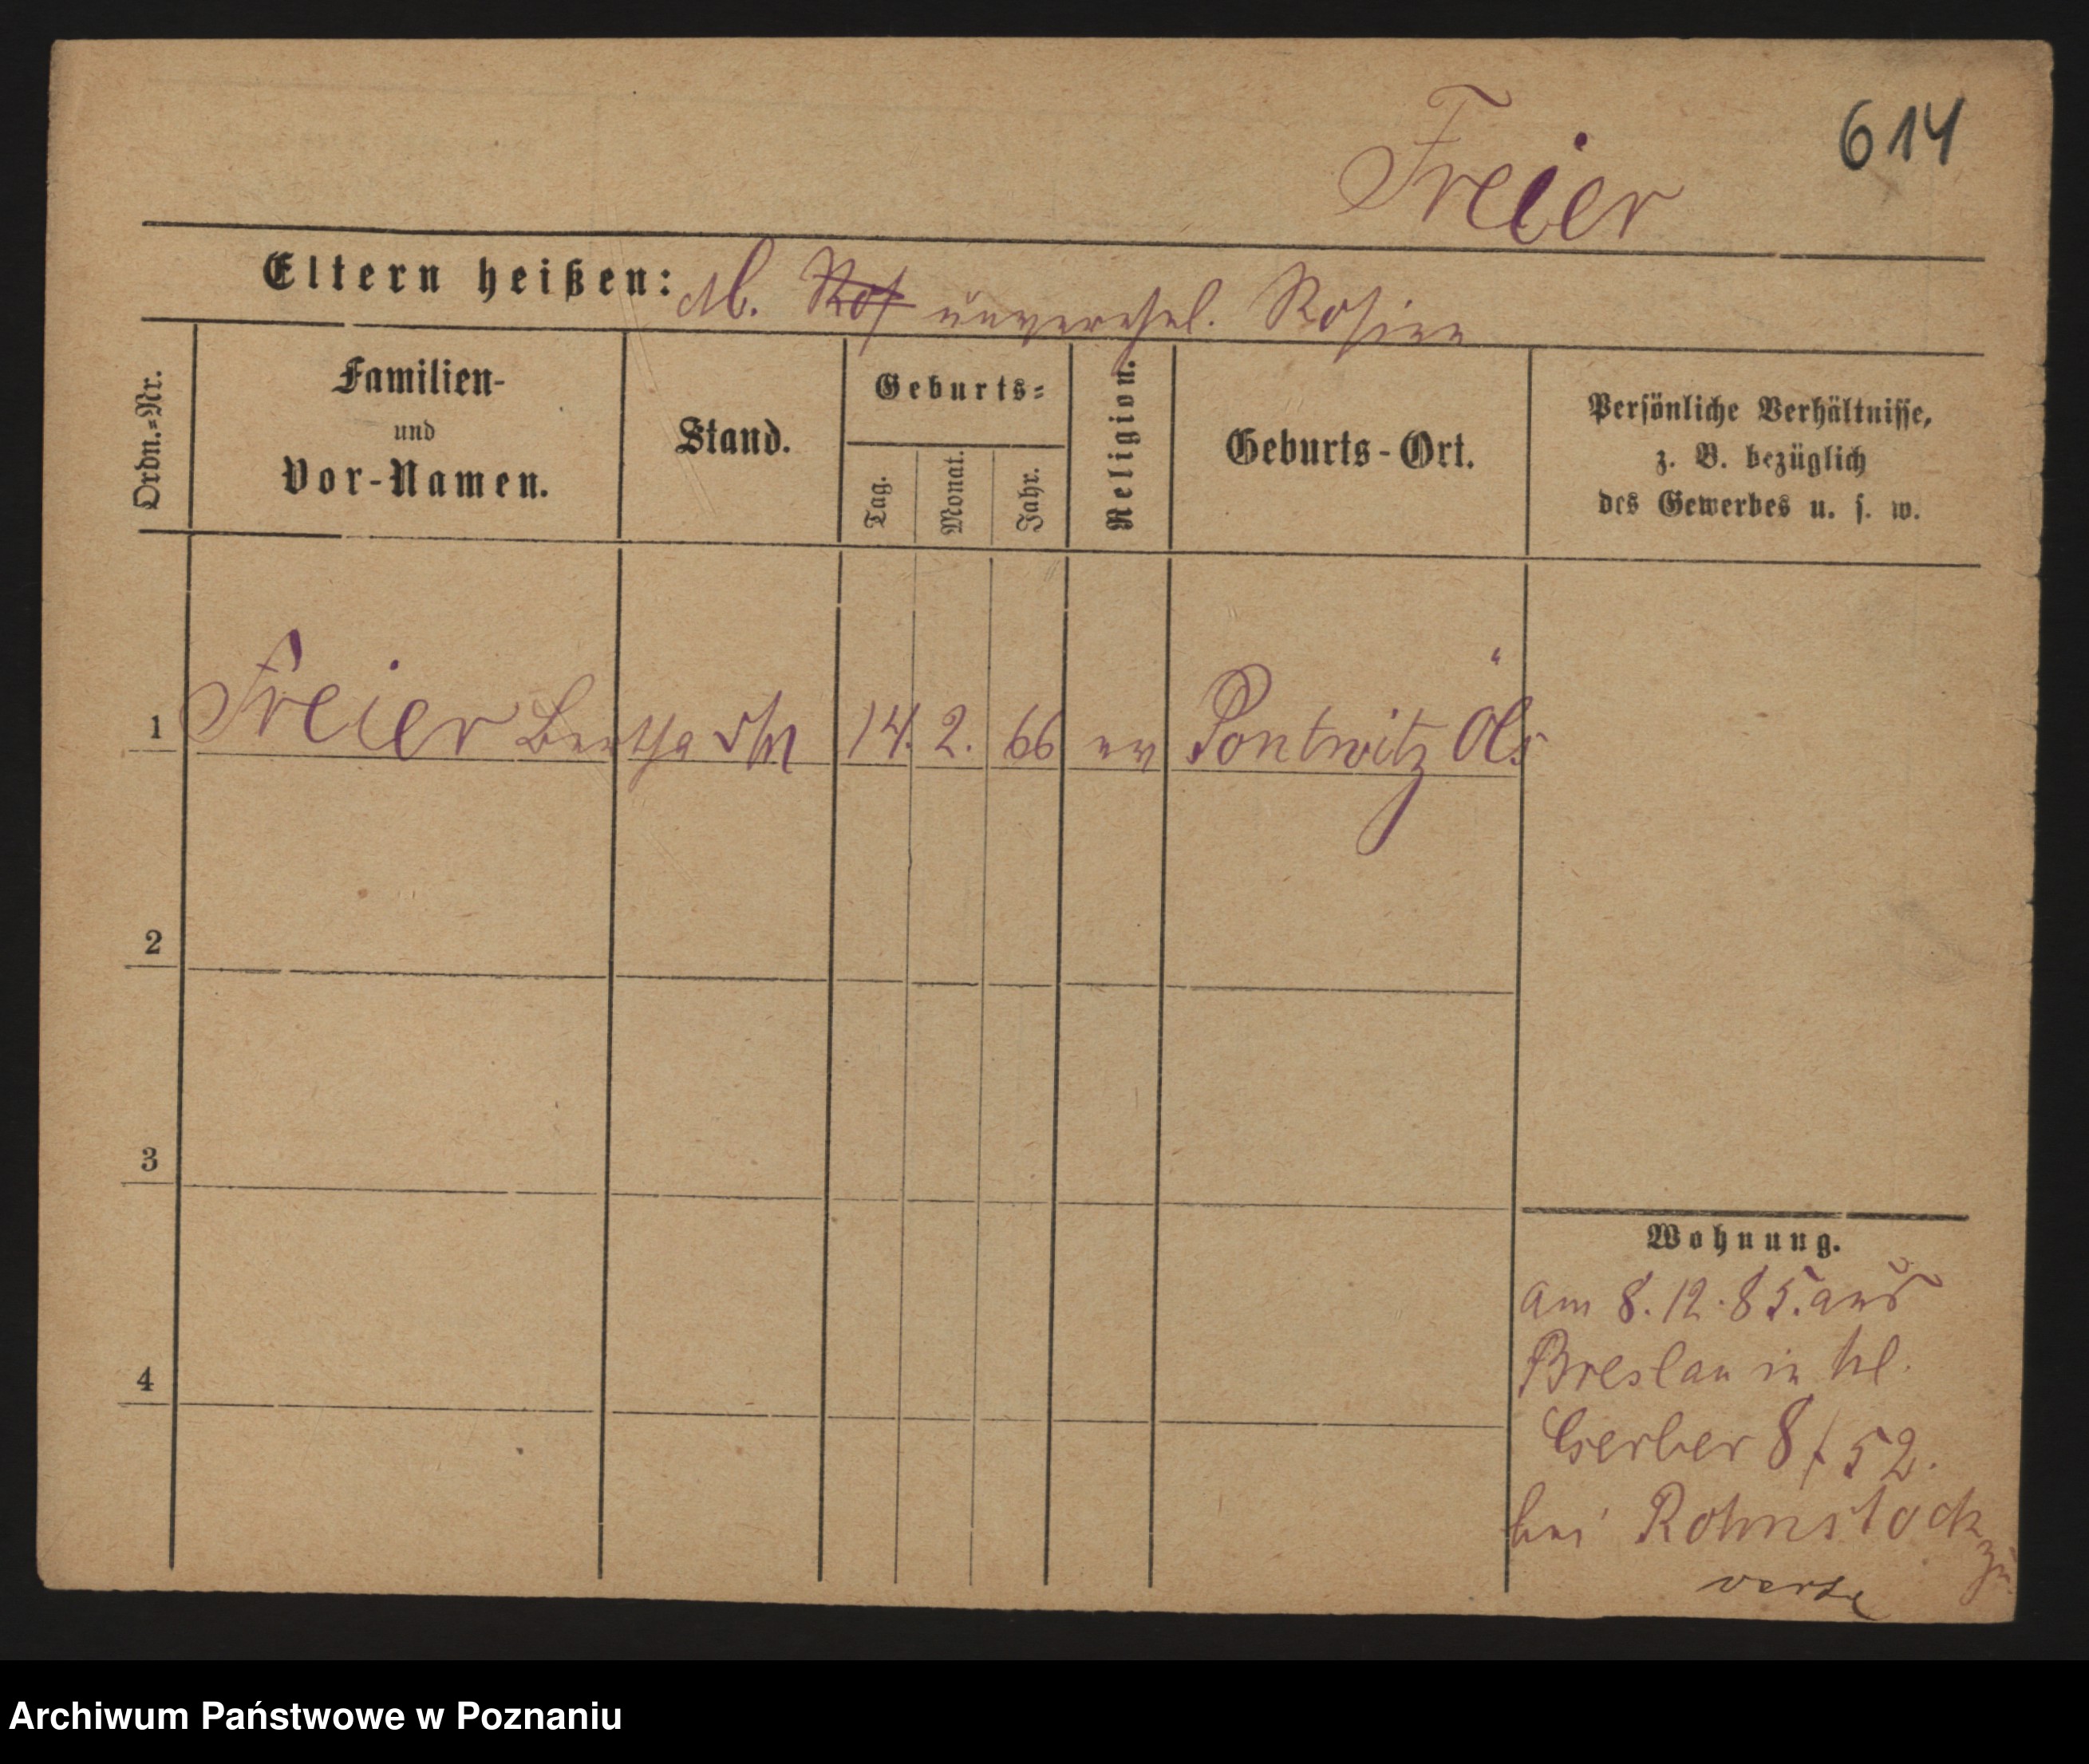 614
Freier
Eltern heißen: unverehel. Rosina
Ordn.=Nr.
Familien-
und
Vor-Namen.
Stand.
Geburts=
Tag.
Monat.
Jahr.
Religion.
Geburts-Ort.
Persönliche Verhältnisse,
z. B. bezüglich
des Gewerbes u. s. w.
1 Freier Bertha 14. 2. 66 ev Pontwitz Öls
2
3
4
Wohnung.
am 8.12.85. aus
Breslau in kl.
Gerber 8/52.
bei Rohnstock
zu
verte
Archiwum Państwowe w Poznaniu